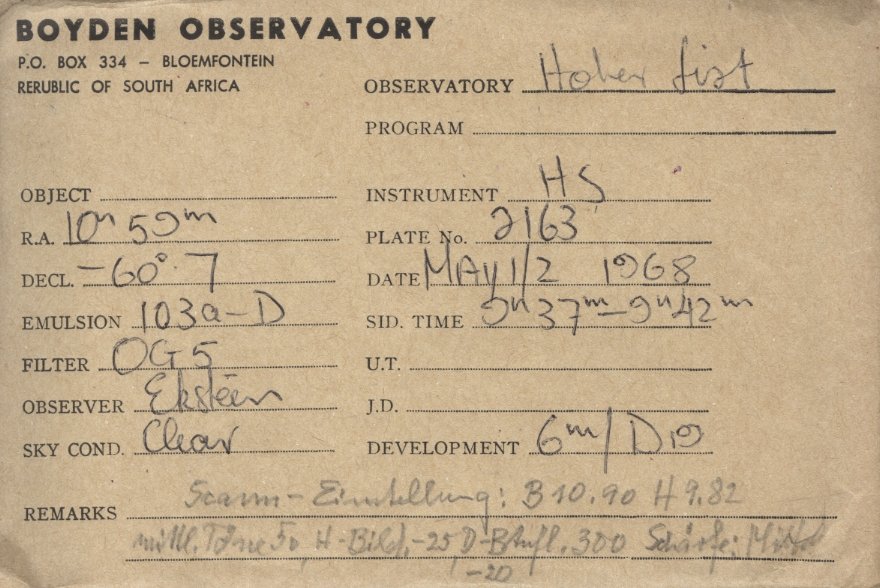 BOYDEN OBSERVATORY
P.O. BOX 334 – BLOEMFONTEIN
RERUBLIC OF SOUTH AFRICA
OBSERVATORY Hoher List
PROGRAM
OBJECT
INSTRUMENT HS
R.A. 10h 59m
PLATE No. 2163
DECL. -60°.7
DATE MAY 1/2 1968
EMULSION 103a-D
SID. TIME 9h37m-9h42m
FILTER OG5
U.T.
OBSERVER Ekstéen
J.D.
SKY COND. Clear
DEVELOPMENT 6m/D19
REMARKS Scann-Einstellung: B 10.90 H 9.82
mittl. Töne 50, H-Bild, -25, D-B Aufl. 300 Schärfe: Mittel
-20